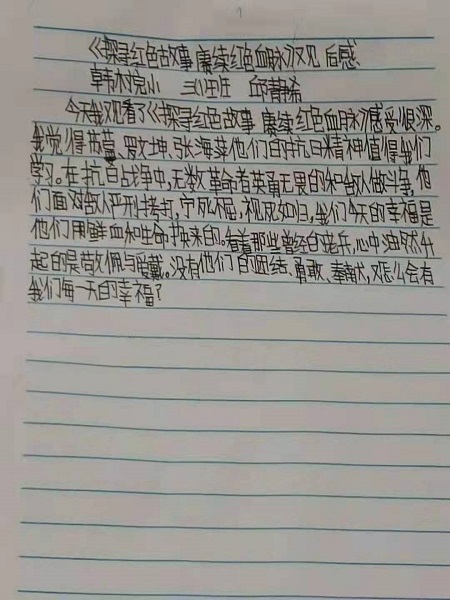 《探寻红色故事 赓续红色血脉》观 后感
韩村完小 三(1)班
今天我观看了《探寻红色故事 赓续红色血脉》感受很深。
我觉得苏蔓、罗文坤、张海萍他们的抗日精神值得我们
学习。在抗日战争中,无数革命者英勇无畏的和敌人做斗争,他
们面对敌人严刑拷打,宁死不屈,视死如归,我们今天的幸福是
他们用鲜血和生命换来的。看着那些曾经的老兵,心中油然升
起的是敬佩与爱戴。没有他们的团结、勇敢、奉献,又怎么会有
我们每一天的幸福?